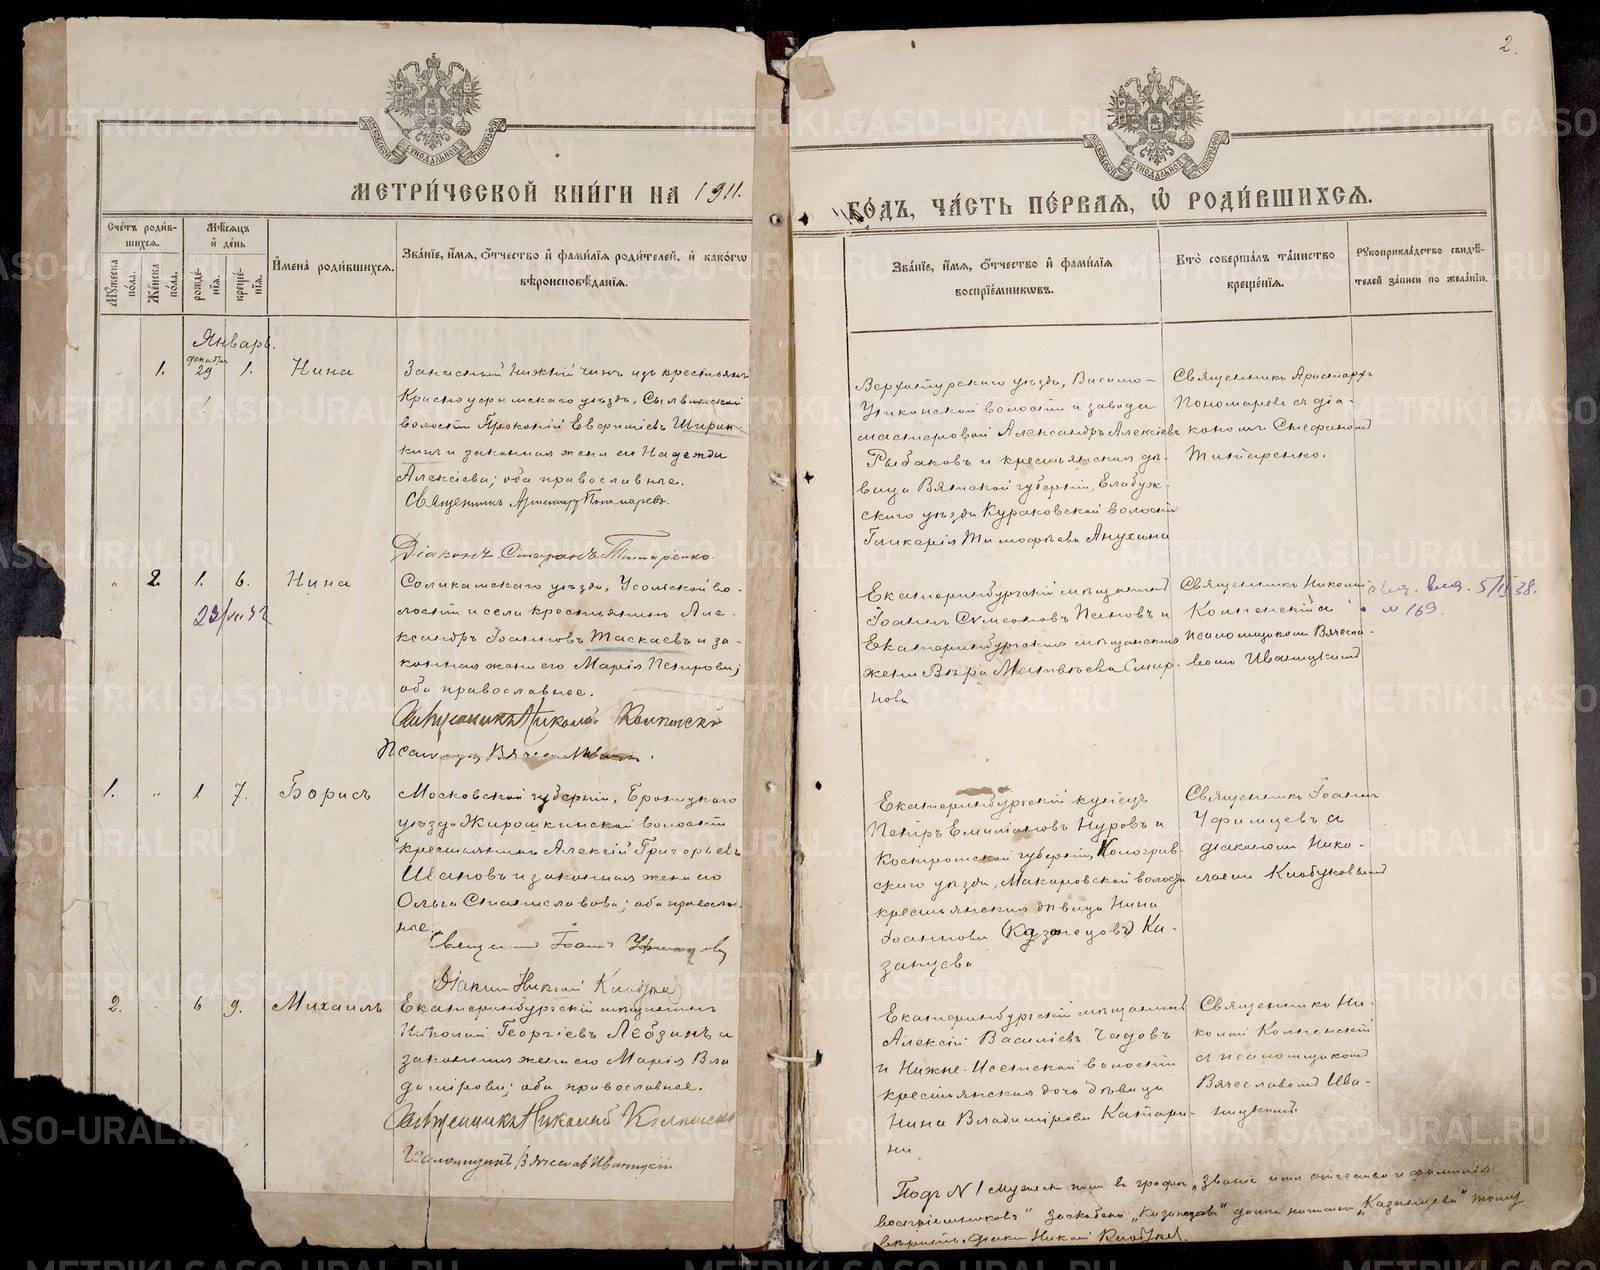 2.
МОСКОВСКОЙ СѴНОДАЛЬНОЙ ТИПОГРАФІИ
МОСКОВСКОЙ СѴНОДАЛЬНОЙ ТИПОГРАФІИ
МЕТРИ́ЧЕСКОЙ КНИ́ГИ НА 1911.
ГО́ДЪ, ЧА́СТЬ ПЕ́РВАЯ, Ѡ РОДИ́ВШИХСЯ.
Сче́тъ роди́в-
шихся.
Му́жеска по́ла.
Же́нска по́ла.
Мѣ́сяцъ
и де́нь
рожде́-
нїя.
креще́-
нїя.
И́мена роди́вшихся.
Зва́нїе, и́мя, ѻ҆́тчество и фами́лїя роди́телей, и како́гѡ
вѣроисповѣ́данїя.
Зва́нїе, и́мя, ѻ҆́тчество и фами́лїя
воспрїе́мникѡвъ.
Кто̀ соверша́лъ та́инство
креще́нїя.
Рукоприкла́дство свидѣ́-
телей за́писи по жела́нїю.
Январь.
декабрь
1. 29 1. Нина
Запасный нижній чинъ изъ крестьянъ
Красноуфимскаго уѣзда, Сылвинской
волости Прокопій Евфиміевъ Ширин-
кинъ и законная жена его Надежда
Алексіева; оба православные.
Священникъ Аристархъ Пономаревъ.
Діаконъ Стефанъ Титаренко.
Верхотурскаго уѣзда, Висимо-
Уткинской волости и завода
мастеровой Александръ Алексіевъ
Рыбаковъ и крестьянская дѣ-
вица Вятской губерніи, Елабуж-
скаго уѣзда Кураковской волости
Гликерія Тимофѣева Анухина
Священникъ Аристархъ
Пономаревъ съ діа-
кономъ Стефаномъ
Титаренко.
" 2. 1. 6. Нина
23/VII 52
Соликамскаго уѣзда, Усольской во-
лости и села крестьянинъ Але-
ксандръ Іоанновъ Таскаевъ и за-
конная жена его Марія Петрова;
оба православные.
Священникъ Николай Колпенскій
Псаломщикъ Вячеславъ Иваницкій.
Екатеринбургскій мѣщанинъ
Іоаннъ Сѵмеоновъ Пановъ и
Екатеринбургская мѣщанская
жена Вѣра Матвѣева Смир-
нова
Священникъ Николай
Колпенскій и
псаломщикомъ Вячесла-
вомъ Иваницкимъ
5/II 38.
№ 169.
1. " 1 7. Борисъ
Московской губерніи, Бронницкаго
уѣзда Жирошкинской волости
крестьянинъ Алексій Григорьевъ
Шаповъ и законная жена его
Ольга Станиславова; оба православ-
ные.
Священникъ Іоаннъ Уфимцевъ
Діаконъ Николай Клабуковъ
Екатеринбургскій купецъ
Петръ Емиліановъ Нуровъ и
Костромской губерніи, Кологрив-
скаго уѣзда, Макаровской волости
крестьянская дѣвица Нина
Іоаннова (Казанцовъ) Ка-
занцева
Священникъ Іоаннъ
Уфимцевъ съ
діакономъ Нико-
лаемъ Клабуковымъ
2. 6 9. Михаилъ
Екатеринбургскій мѣщанинъ
Николай Георгіевъ Лебзинъ и
законная жена его Марія Вла-
димірова; оба православные.
Священникъ Николай Колпенскій
Псаломщикъ Вячеславъ Иваницкій
Екатеринбургскій мѣщанинъ
Алексій Василіевъ Чадовъ
и Нижне-Исетской волости
крестьянская дочь дѣвица
Нина Владимірова Катари-
на
Священникъ Ни-
колай Колпенскій
съ псаломщикомъ
Вячеславомъ Ива-
ницкимъ
Подъ N 1 мужеск. пола въ графѣ „Званіе имя отчество и фамилія
воспріемниковъ" заскоблено „Казанцовъ" далѣе написано „Казанцева" тому
вѣрить. Діаконъ Николай Клабуковъ.
METRIKI.GASO-URAL.RU